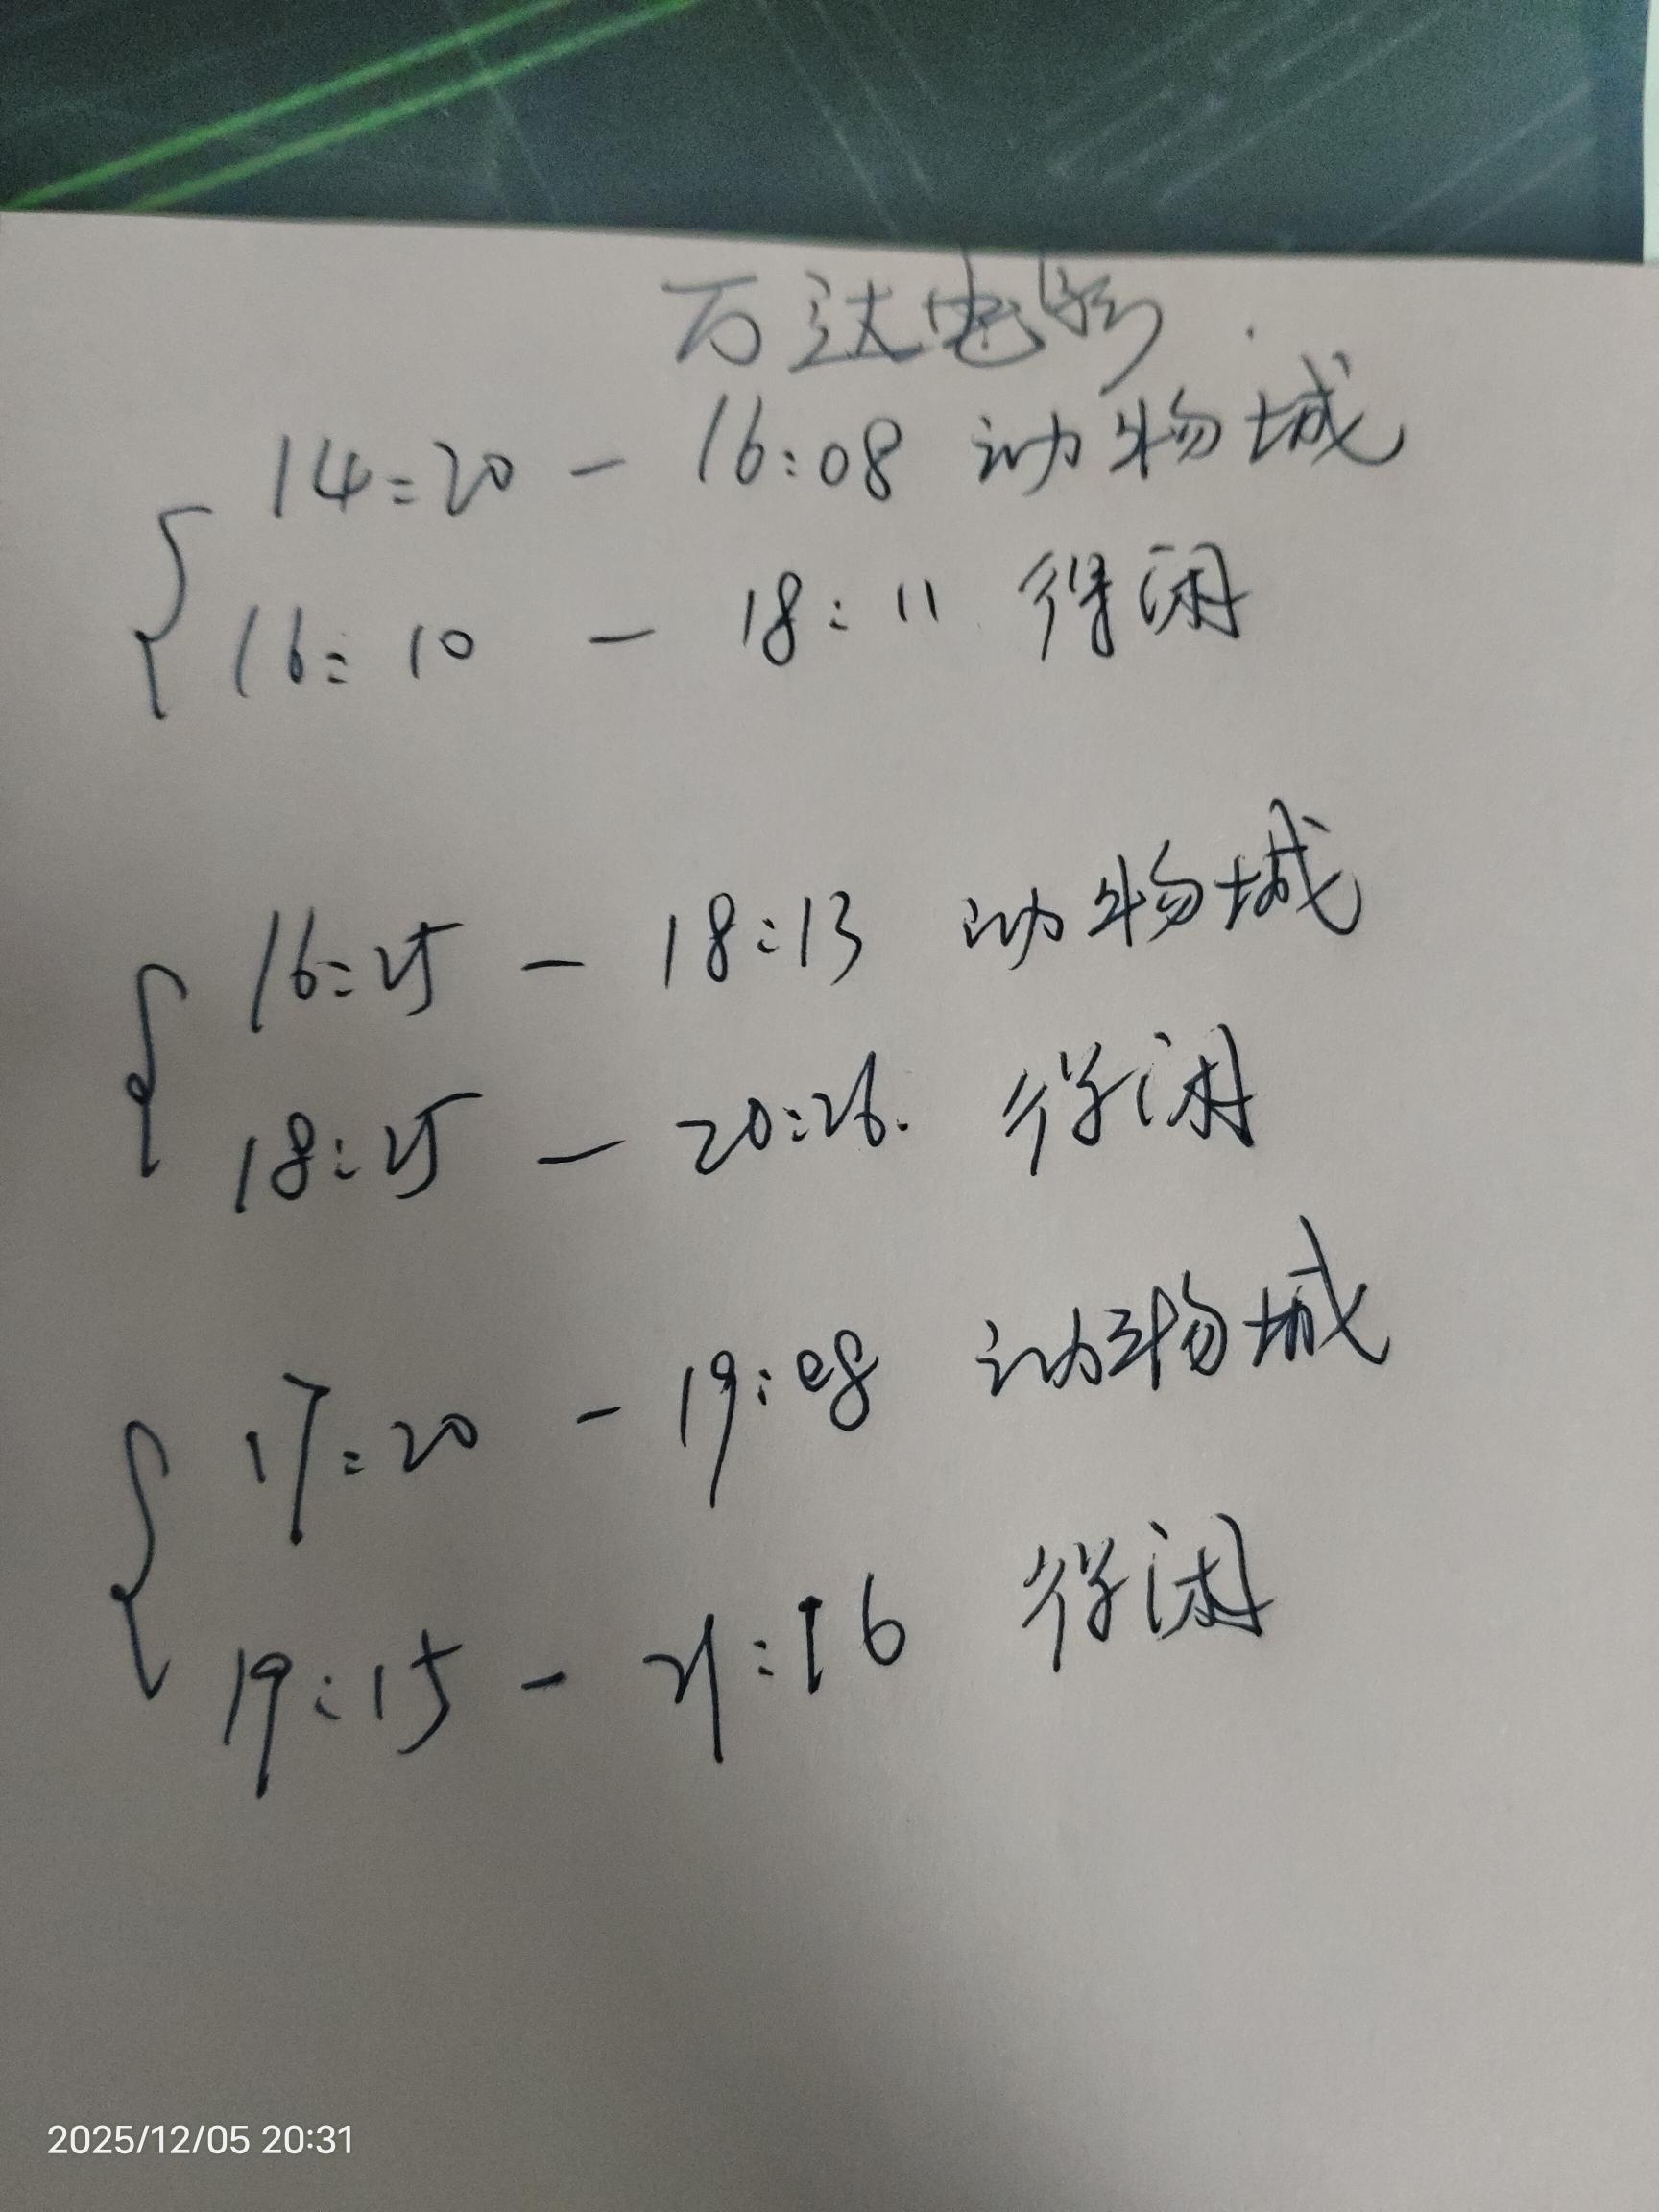 万达电影
14:20 - 16:08 动物城
16:10 - 18:11 得闲
16:25 - 18:13 动物城
18:25 - 20:26. 得闲
17:20 - 19:08 动物城
19:15 - 21:16 得闲
2025/12/05 20:31